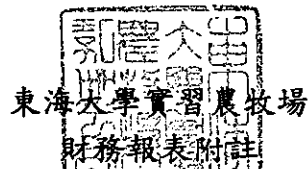 東海大學實習農牧場
財務報表附註